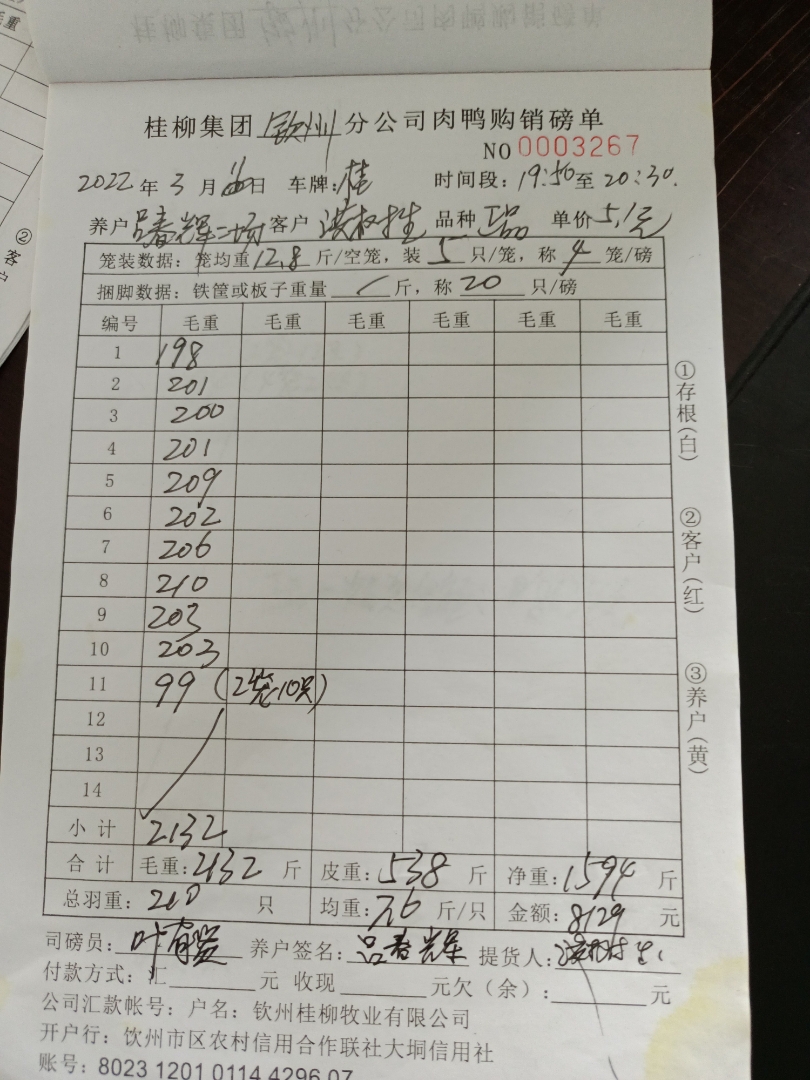 桂柳集团 钦州 分公司肉鸭购销磅单
NO 0003267
2022 年 3 月 日 车牌: 桂 时间段: 19:50 至 20:30.
养户 吕春辉二场 客户 洪权生 品种 正品 单价 5.1元
笼装数据: 笼均重 12.8 斤/空笼, 装 5 只/笼, 称 4 笼/磅
捆脚数据: 铁筐或板子重量 / 斤, 称 20 只/磅
编号 毛重 毛重 毛重 毛重 毛重 毛重
1 198
2 201
3 200
4 201
5 209
6 202
7 206
8 210
9 203
10 203
11 99 (2笼10只)
12
13
14
小计 2132
合计 毛重: 2132 斤 皮重: 538 斤 净重: 1594 斤
总羽重: 210 只 均重: 7.6 斤/只 金额: 8129 元
司磅员: 养户签名: 吕春辉 提货人:
付款方式: 汇 元 收现 元欠(余): 元
公司汇款帐号: 户名: 钦州桂柳牧业有限公司
开户行: 钦州市区农村信用合作联社大垌信用社
账号: 8023 1201 0114 4296 07
①存根(白)
②客户(红)
③养户(黄)
毛重
②客户